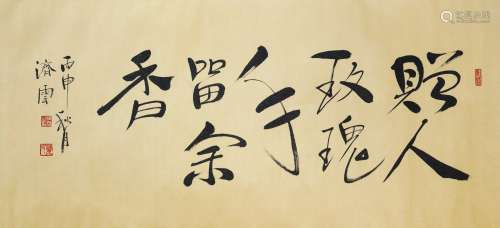 赠人
玫瑰
人手
留余
香
丙申秋月
济云